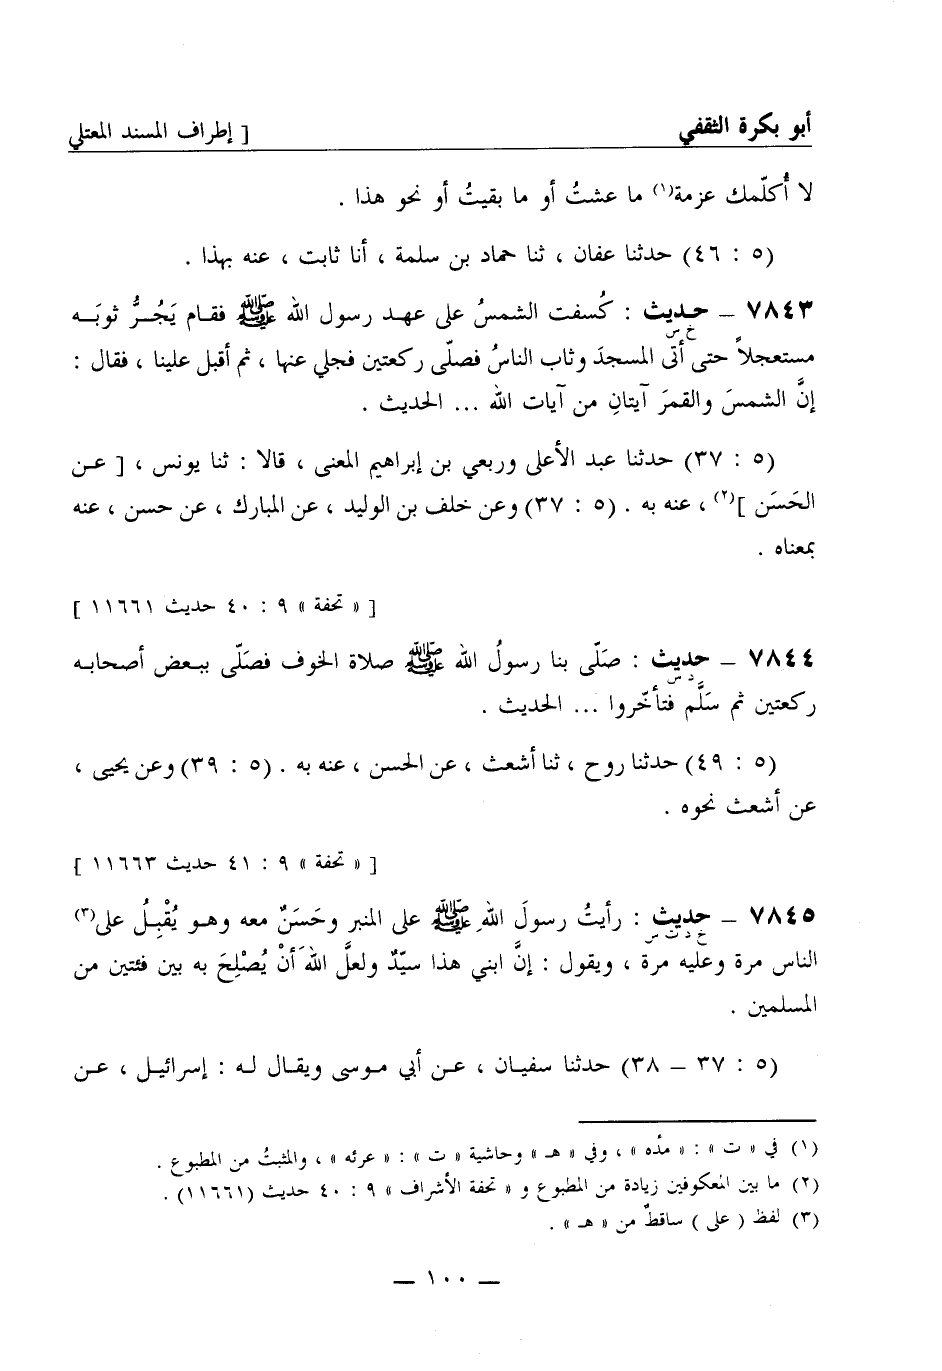 أبو بكرة الثقفي
[ إطراف المسند المعتلي
لا أُكلّمك عزمة(١) ما عشتُ أو ما بقيتُ أو نحو هذا .
(٥ : ٤٦) حدثنا عفان ، ثنا حماد بن سلمة ، أنا ثابت ، عنه بهذا .
٧٨٤٣ – حديث : كُسفت الشمسُ على عهد رسول الله ﷺ فقام يَجُرُّ ثوبَه
خ س
مستعجلاً حتى أتى المسجدَ وثاب الناسُ فصلّى ركعتين فجلي عنها ، ثم أقبل علينا ، فقال :
إنَّ الشمسَ والقمرَ آيتانِ من آيات الله ... الحديث .
(٥ : ٣٧) حدثنا عبد الأعلى وربعي بن إبراهيم المعنى ، قالا : ثنا يونس ، [ عن
الحَسَن ](٢) ، عنه به . (٥ : ٣٧) وعن خلف بن الوليد ، عن المبارك ، عن حسن ، عنه
بمعناه .
[ « تحفة » ٩ : ٤٠ حديث ١١٦٦١ ]
٧٨٤٤ – حديث : صَلّى بنا رسولُ الله ﷺ صلاة الخوف فصَلّى ببعض أصحابه
د س
ركعتين ثم سَلَّم فتأخّروا ... الحديث .
(٥ : ٤٩) حدثنا روح ، ثنا أشعث ، عن الحسن ، عنه به . (٥ : ٣٩) وعن يحيى ،
عن أشعث نحوه .
[ « تحفة » ٩ : ٤١ حديث ١١٦٦٣ ]
٧٨٤٥ – حديث : رأيتُ رسولَ اللهِ ﷺ على المنبر وحَسَنٌ معه وهو يُقْبِلُ على(٣)
خ د ت س
الناس مرة وعليه مرة ، ويقول : إنَّ ابني هذا سيّدٌ ولعلَّ اللهَ أنْ يُصْلِحَ به بين فئتين من
المسلمين .
(٥ : ٣٧ – ٣٨) حدثنا سفيان ، عن أبي موسى ويقال له : إسرائيل ، عن
(١) في « ت » : « مدّه » ، وفي « هـ » وحاشية « ت » : « عرئه » ، والمثبتُ من المطبوع .
(٢) ما بين المعكوفين زيادة من المطبوع و « تحفة الأشراف » ٩ : ٤٠ حديث (١١٦٦١) .
(٣) لفظ ( على ) ساقطٌ من « هـ » .
— ١٠٠ —